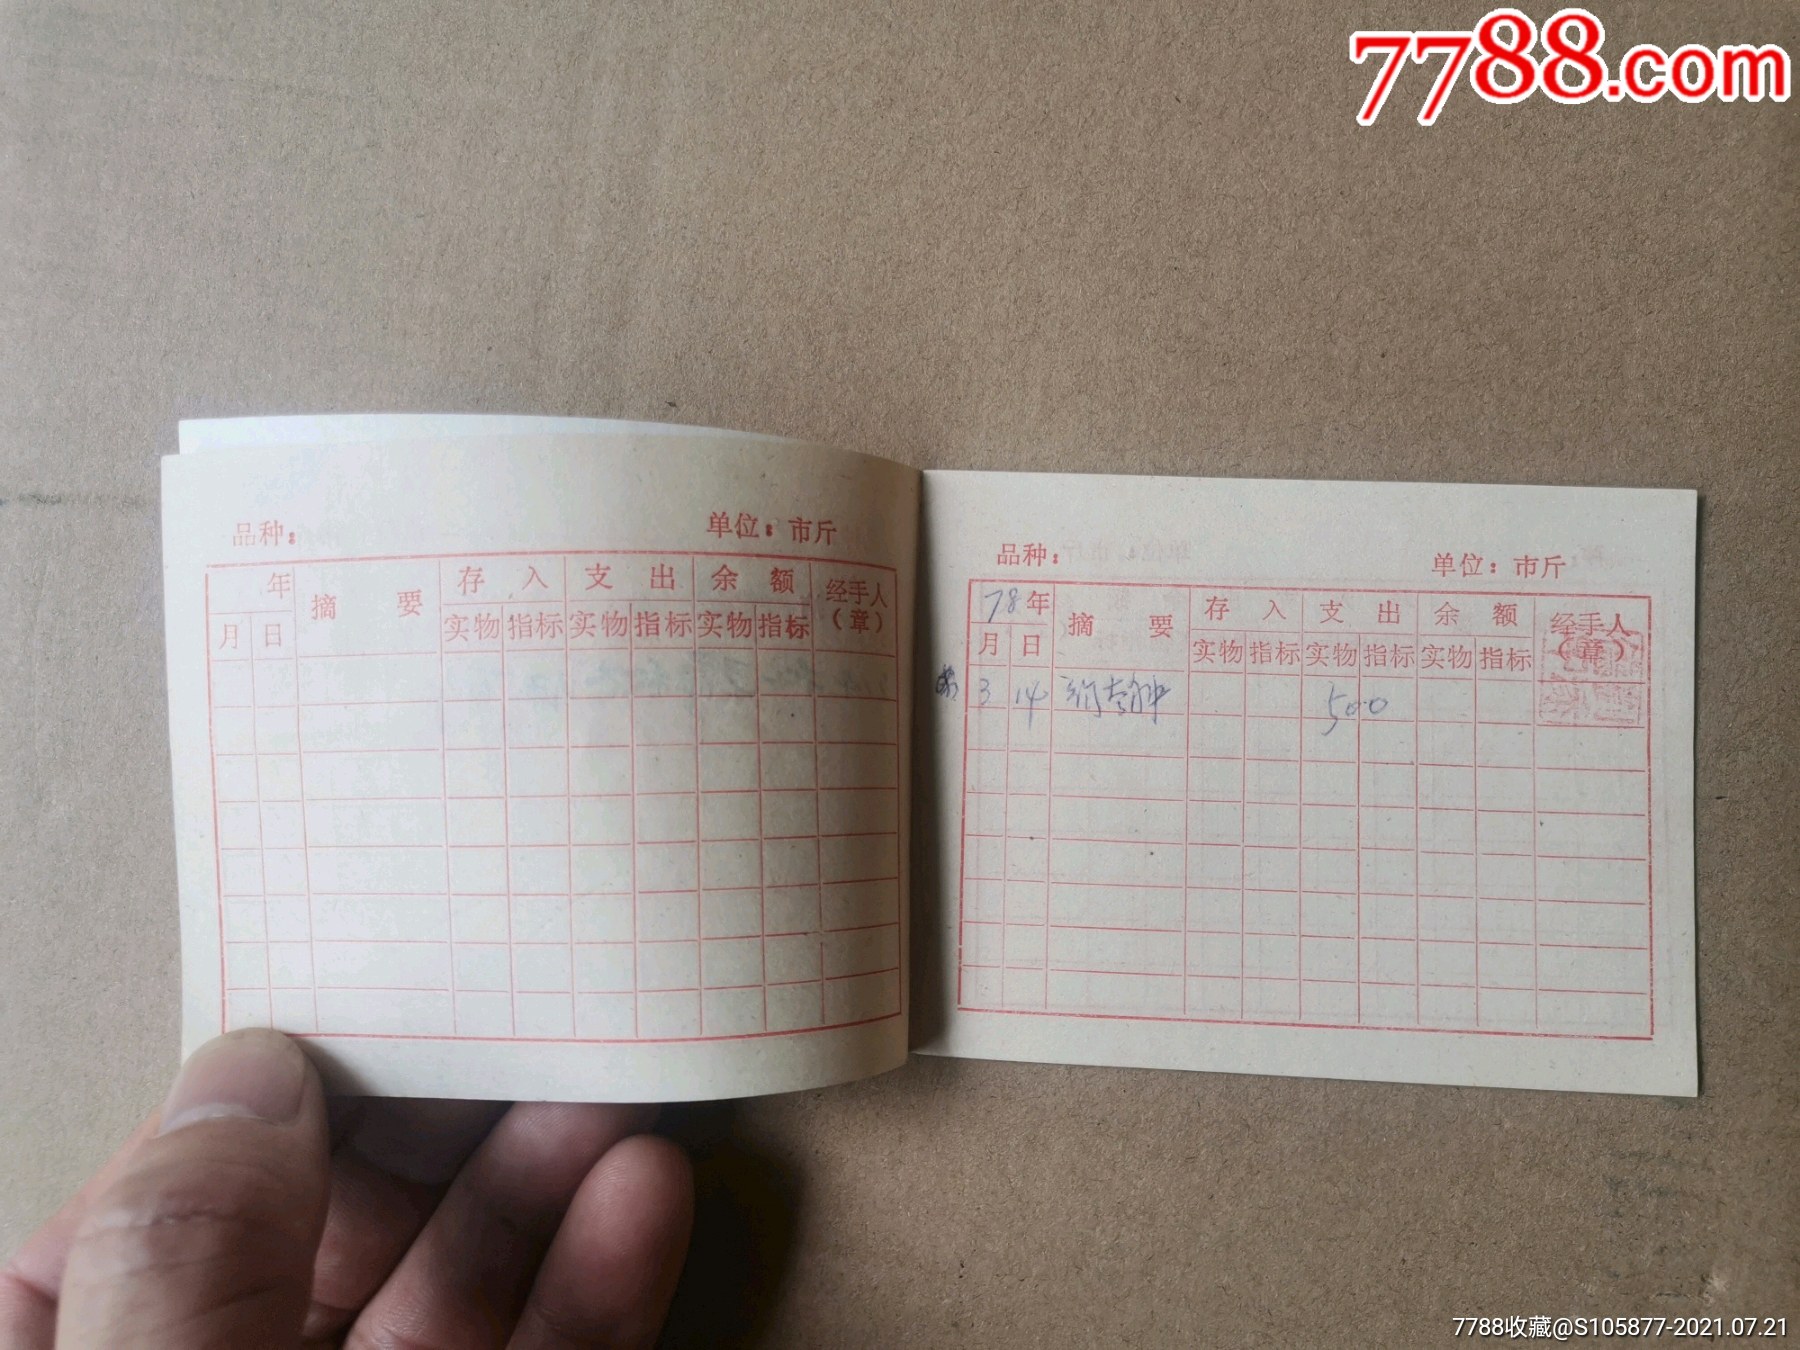 7788.com
品种：
单位：市斤
年 摘 要 存 入 支 出 余 额 经手人（章）
月 日 实物 指标 实物 指标 实物 指标
品种：
单位：市斤
78年 摘 要 存 入 支 出 余 额 经手人（章）
月 日 实物 指标 实物 指标 实物 指标
3 14 500
7788收藏@S105877-2021.07.21